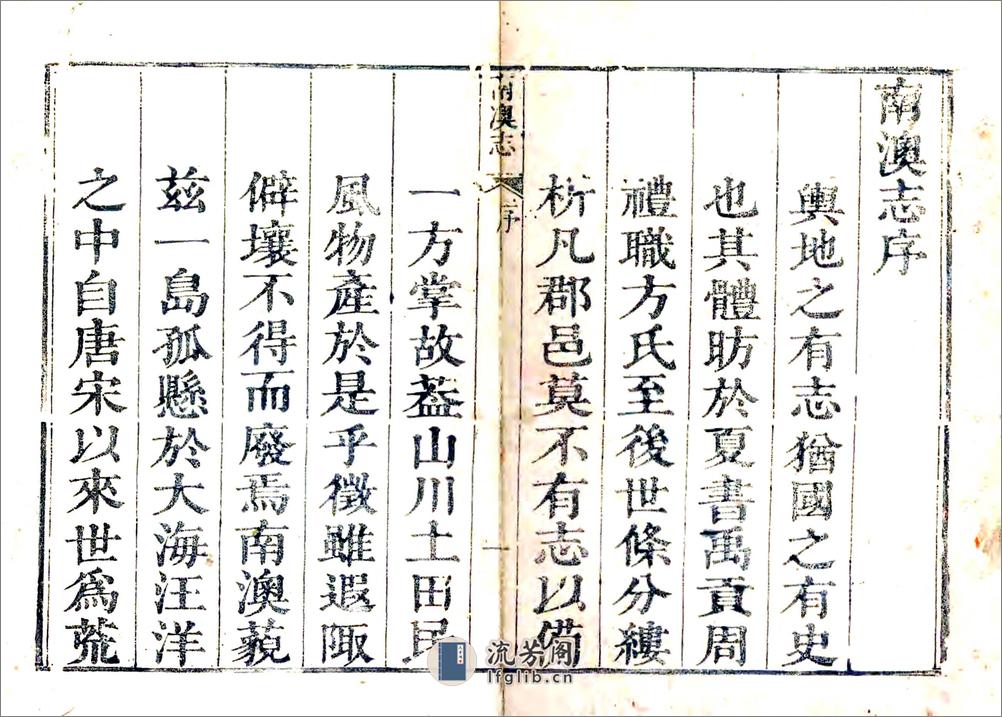 南澳志序
輿地之有志猶國之有史
也其體昉於夏書禹貢周
禮職方氏至後世條分縷
析凡郡邑莫不有志以備
南澳志
序
一
一方掌故葢山川土田民
風物產於是乎徵雖遐陬
僻壤不得而廢焉南澳藐
茲一島孤懸於大海汪洋
之中自唐宋以來世爲荒
流芳阁
lfglib.cn